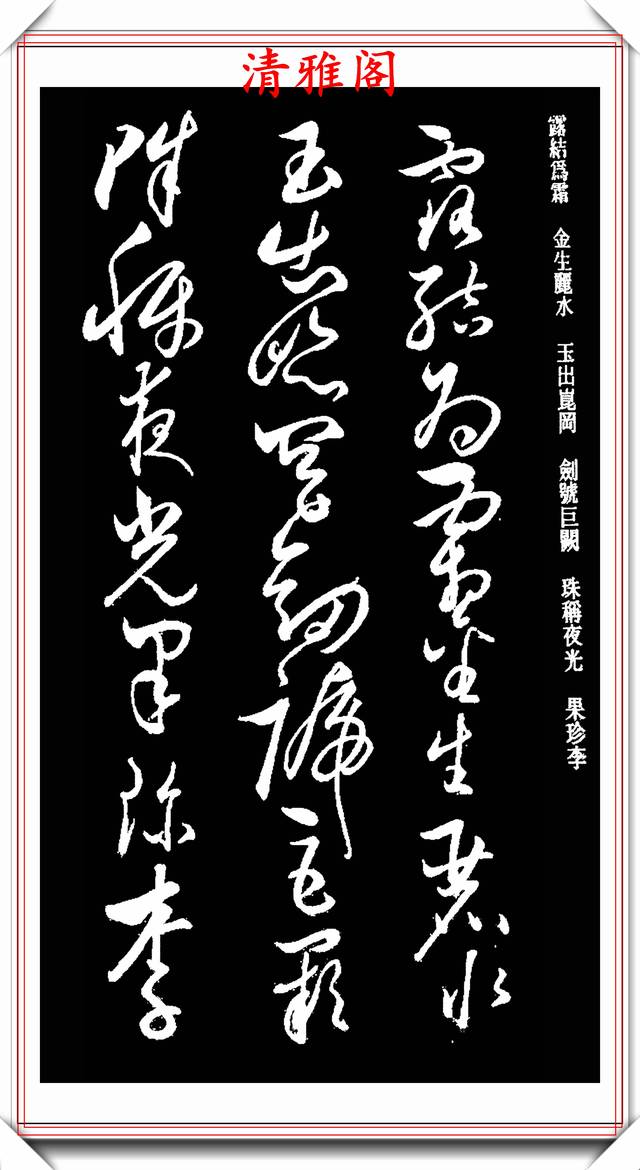 清雅阁
露結爲霜 金生麗水 玉出崑岡 劍號巨闕 珠稱夜光 果珍李
露結爲霜金生麗水
玉出崑岡劍號巨闕
珠稱夜光果珍李